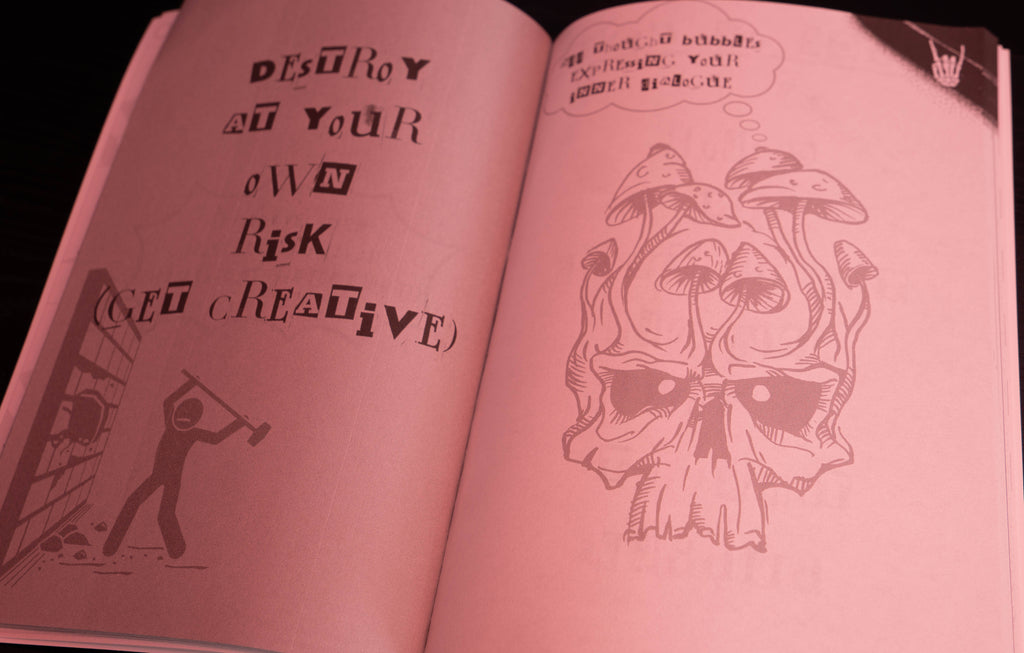 DESTROY
AT YOUR
OWN
RiSK
(GET cREATiVE)
THOUGHT bUbbLES
EXPRESSiNG YOUR
iNNER diALOGUE